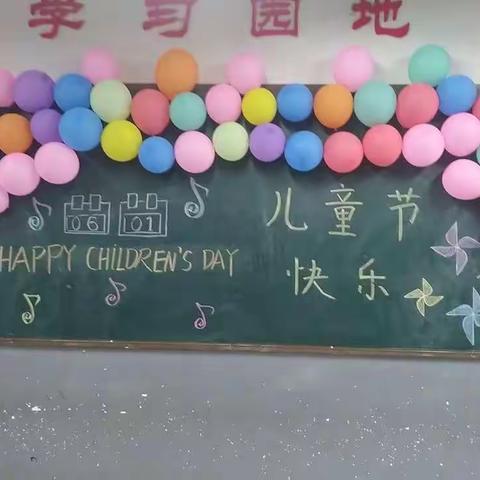 学习园地
06 01
HAPPY CHiLDREN'S DAY
儿童节
快乐